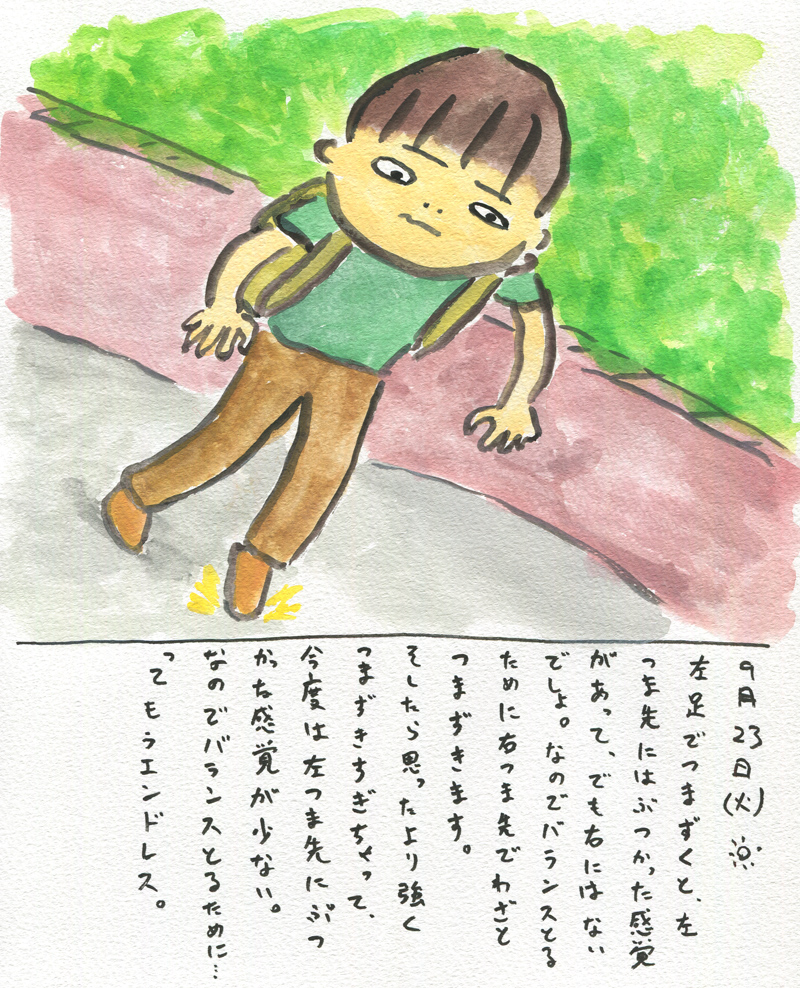 9月23日(火)
左足でつまずくと、左
つま先にはぶつかった感覚
があって、でも右にはない
でしょ。なのでバランスとる
ために右つま先でわざと
つまずきます。
そしたら思ったより強く
つまずきすぎちゃって、
今度は左つま先にぶつ
かった感覚が少ない。
なのでバランスとるために…
ってもうエンドレス。